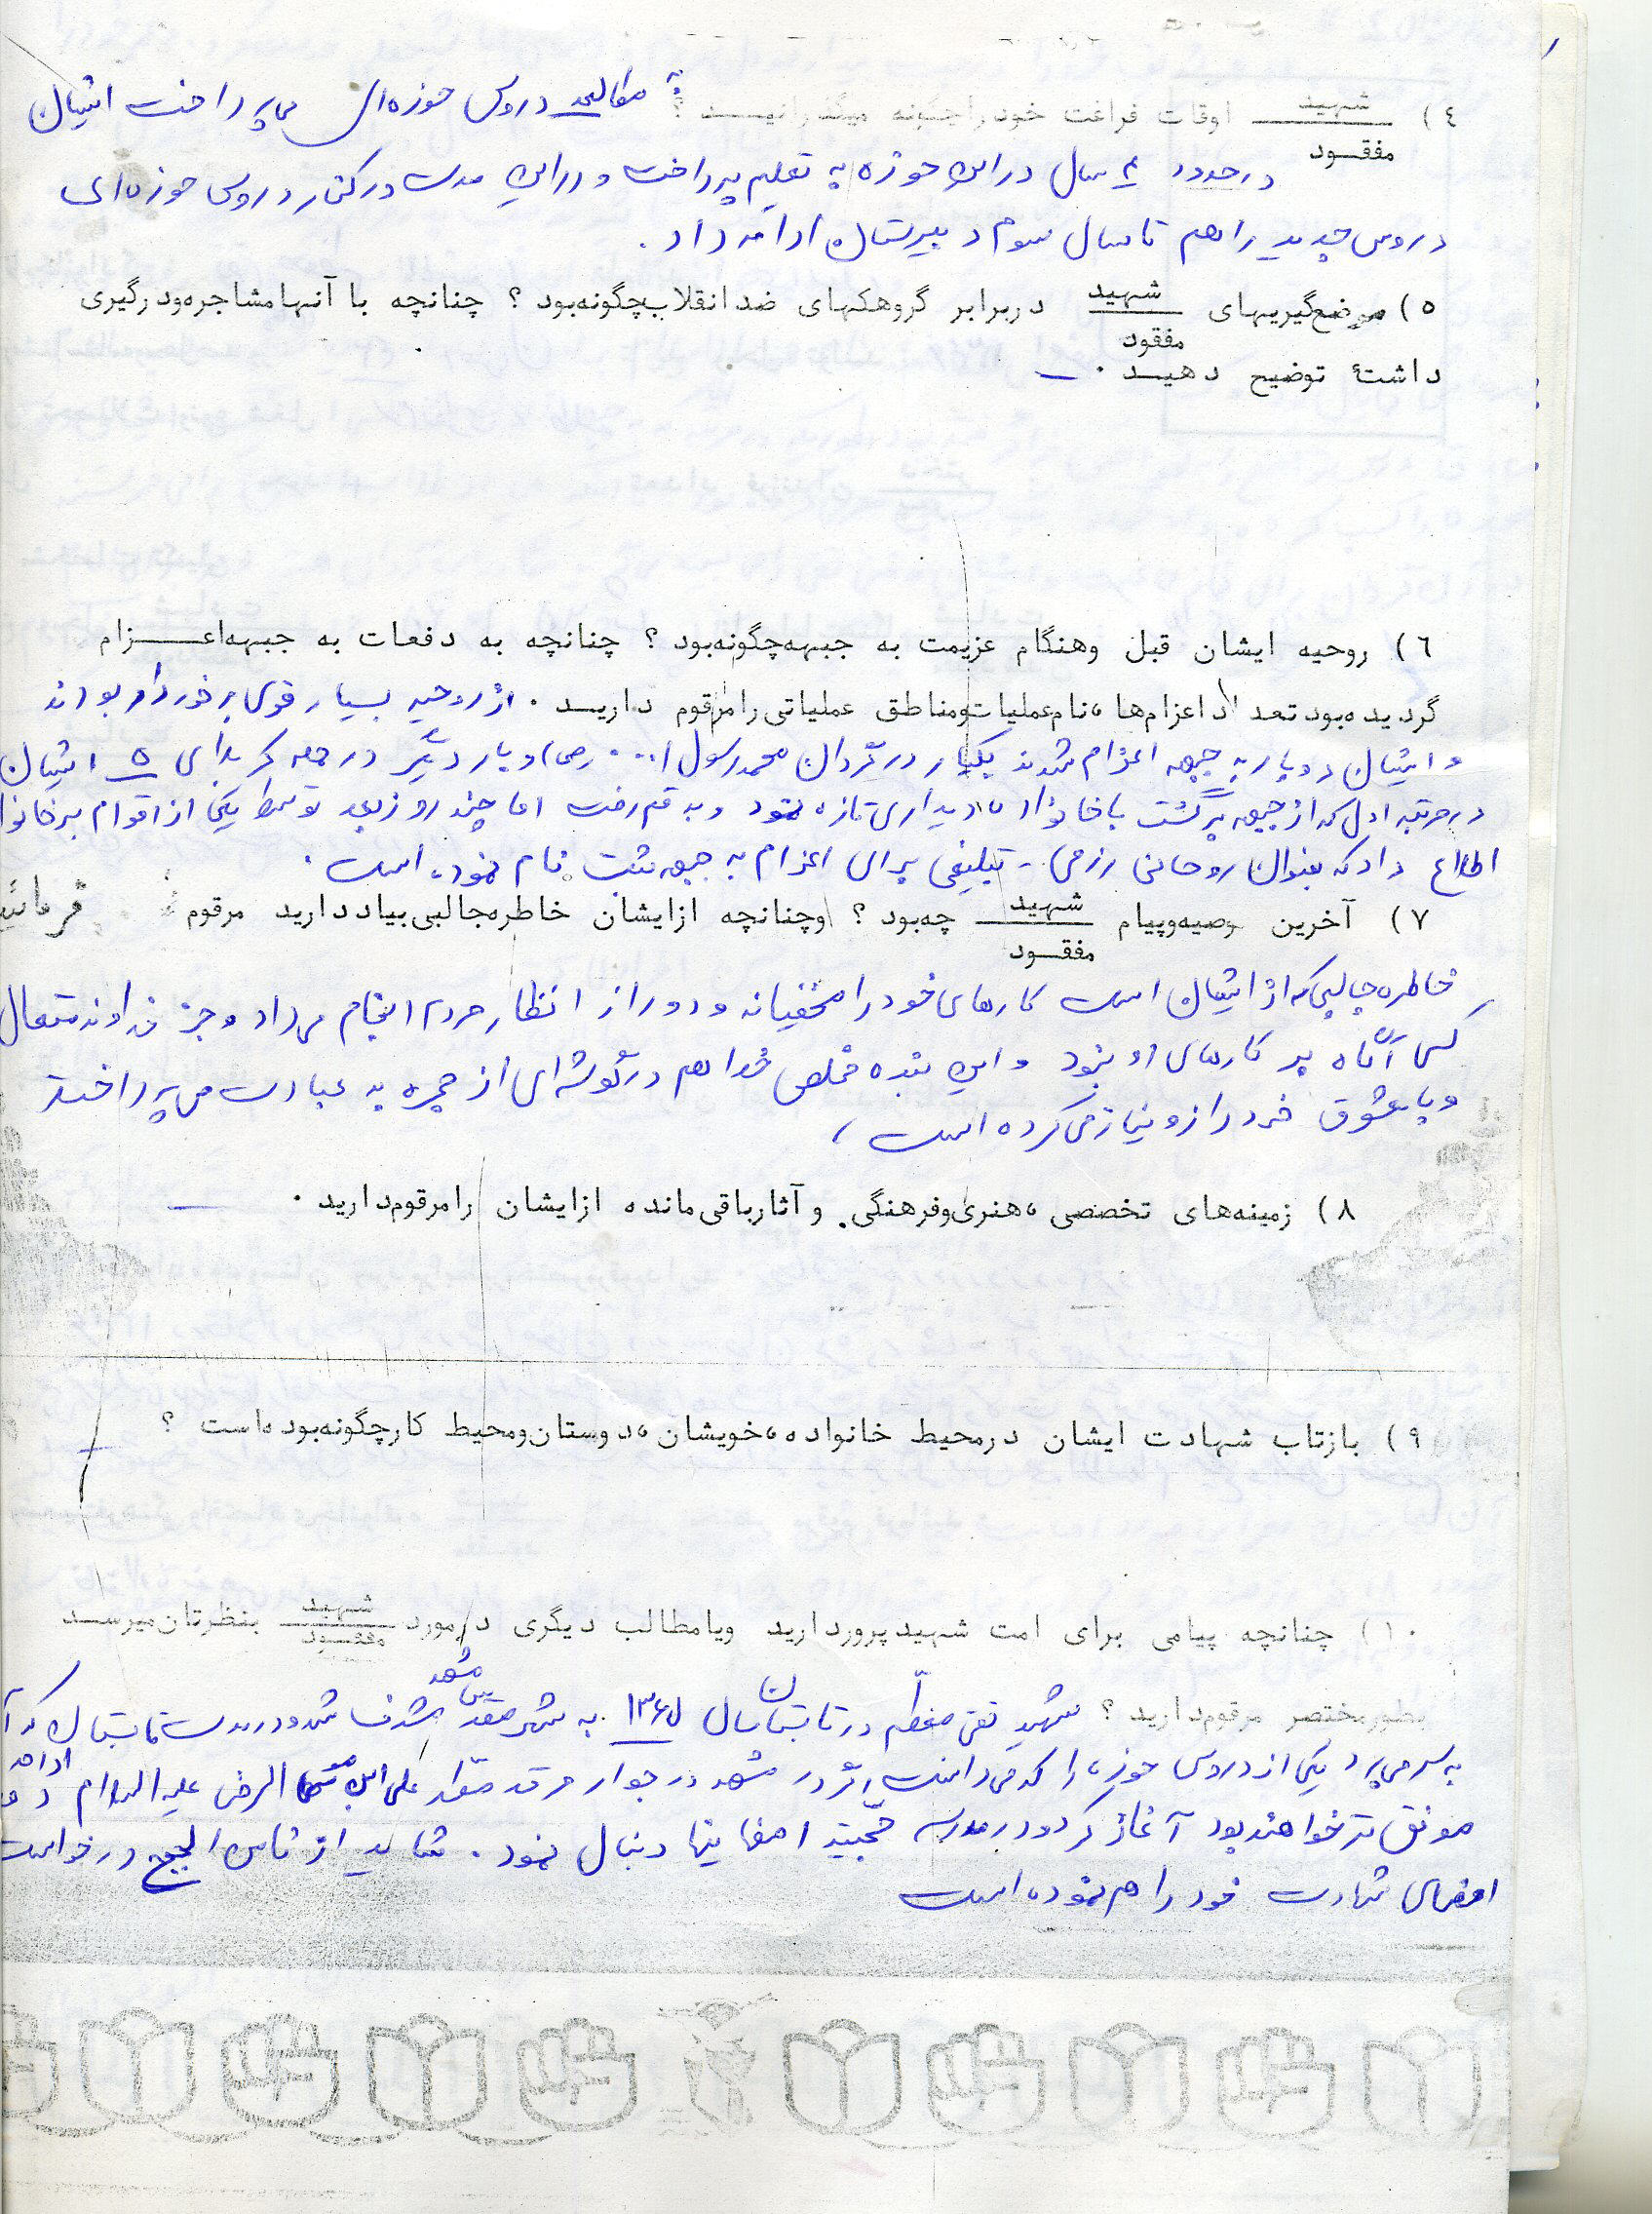 ۴) شهید / مفقود اوقات فراغت خود را چگونه میگذرانید ؟ به مطالعه دروس حوزه‌ای می‌پرداخت ایشان
در حدود ۴ سال در این حوزه به تعلیم پرداخت و در این مدت در کنار دروس حوزه‌ای
دروس جدید را هم تا سال سوم دبیرستان ادامه داد .
۵) موضع‌گیریهای شهید / مفقود دربرابر گروهکهای ضد انقلاب چگونه‌بود ؟ چنانچه با آنها مشاجره‌ودرگیری
داشتهٔ توضیح دهید . —
۶) روحیه ایشان قبل وهنگام عزیمت به جبهه‌چگونه‌بود ؟ چنانچه به دفعات به جبهه‌اعزام
گردیده‌بود تعداد اعزام‌ها ، نام‌عملیات‌ومناطق عملیاتی‌را مرقوم دارید . از روحیه بسیار قوی برخوردار بودند
و ایشان دوبار به جبهه اعزام شدند یکبار در گردان محمد رسول ا... (ص) و بار دیگر در حمله کربلای ۵ ایشان
در مرتبه اول که از جبهه برگشت با خانواده دیداری تازه نمود و به قم رفت اما چند روز بعد توسط یکی از اقوام به
اطلاع داد که بعنوان روحانی رزمی - تبلیغی برای اعزام به جبهه ثبت نام نموده است .
۷) آخرین وصیه‌وپیام شهید / مفقود چه‌بود ؟ وچنانچه ازایشان خاطره‌جالبی‌بیاد دارید مرقوم فرمائید
خاطره جالبی که از ایشان است کارهای خود را مخفیانه و دور از انظار مردم انجام می‌داد و جز خداوند متعال
کسی آگاه بر کارهای او نبود و این بنده مخلص خدا هم در گوشه‌ای از حجره به عبادت می‌پرداخته
و با معشوق خود راز و نیاز می‌کرده است ،
۸) زمینه‌های تخصصی ، هنری‌وفرهنگی . و آثارباقی‌مانده ازایشان رامرقوم‌دارید . —
۹) بازتاب شهادت ایشان درمحیط خانواده ، خویشان ، دوستان‌ومحیط کارچگونه‌بوده‌است ؟ —
۱۰) چنانچه پیامی برای امت شهیدپروردارید ویامطالب دیگری درمورد شهید / مفقود بنظرتان‌میرسد
بطورمختصر مرقوم‌دارید ؟ شهید تقی معظم در تابستان سال ۱۳۶۵ به شهر مقدس مشهد مشرف شد و در مدت تابستان که آ
به سر می‌برد یکی از دروس حوزه را که می‌دانست اگر در مشهد در جوار مرقد علی ابن موسی الرضی علیه السلام ادامه
موفق‌تر خواهند بود آغاز کرد و در مدرسه دنبال نمود . شاید از ثامن الحجج درخواست
امضای شهادت خود را هم نموده است